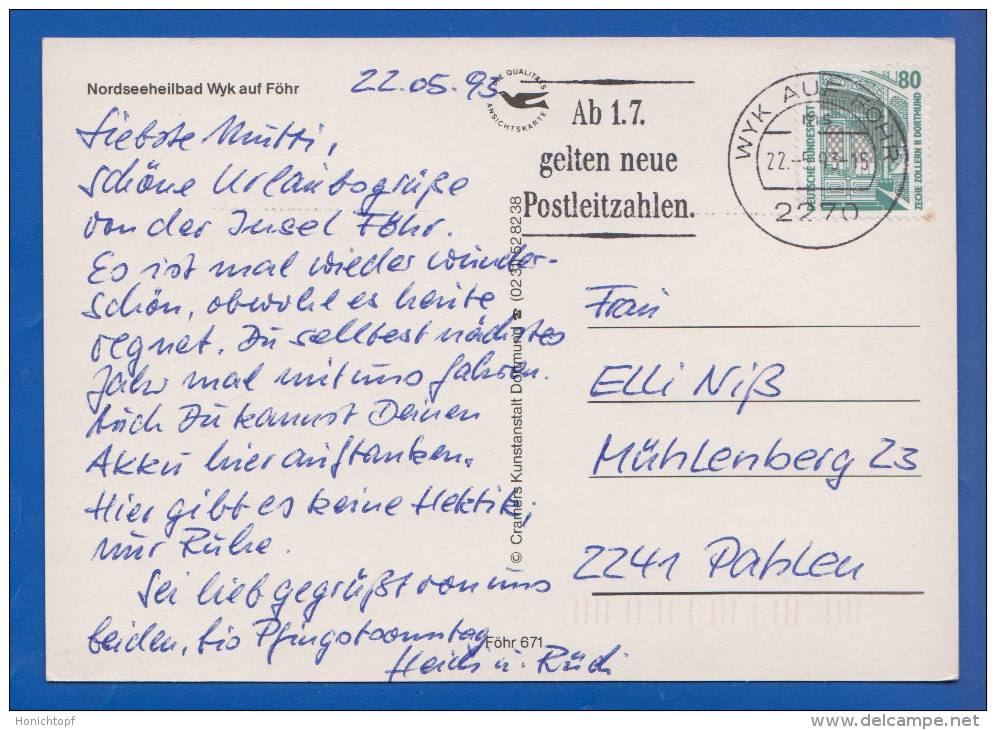 Nordseeheilbad Wyk auf Föhr
22.05.93
Liebste Mutti,
schöne Urlaubsgrüße
von der Insel Föhr.
Es ist mal wieder wunder-
schön, obwohl es heute
regnet. Du solltest nächstes
Jahr mal mit uns fahren.
Auch Du kannst Deinen
Akku hier auftanken.
Hier gibt es keine Hektik,
nur Ruhe.
Sei lieb gegrüßt von uns
beiden, bis Pfingstsonntag
Heidi u. Rüdi
QUALITÄTS
ANSICHTSKARTE
© Cramers Kunstanstalt Dortmund ☎ (0231) 528238
Föhr 671
Ab 1.7.
gelten neue
Postleitzahlen.
WYK AUF FÖHR
22.-5.93-15
2270
80
DEUTSCHE BUNDESPOST
ZECHE ZOLLERN II DORTMUND
Frau
Elli Niß
Mühlenberg 23
2241 Pahlen
Honichtopf
www.delcampe.net